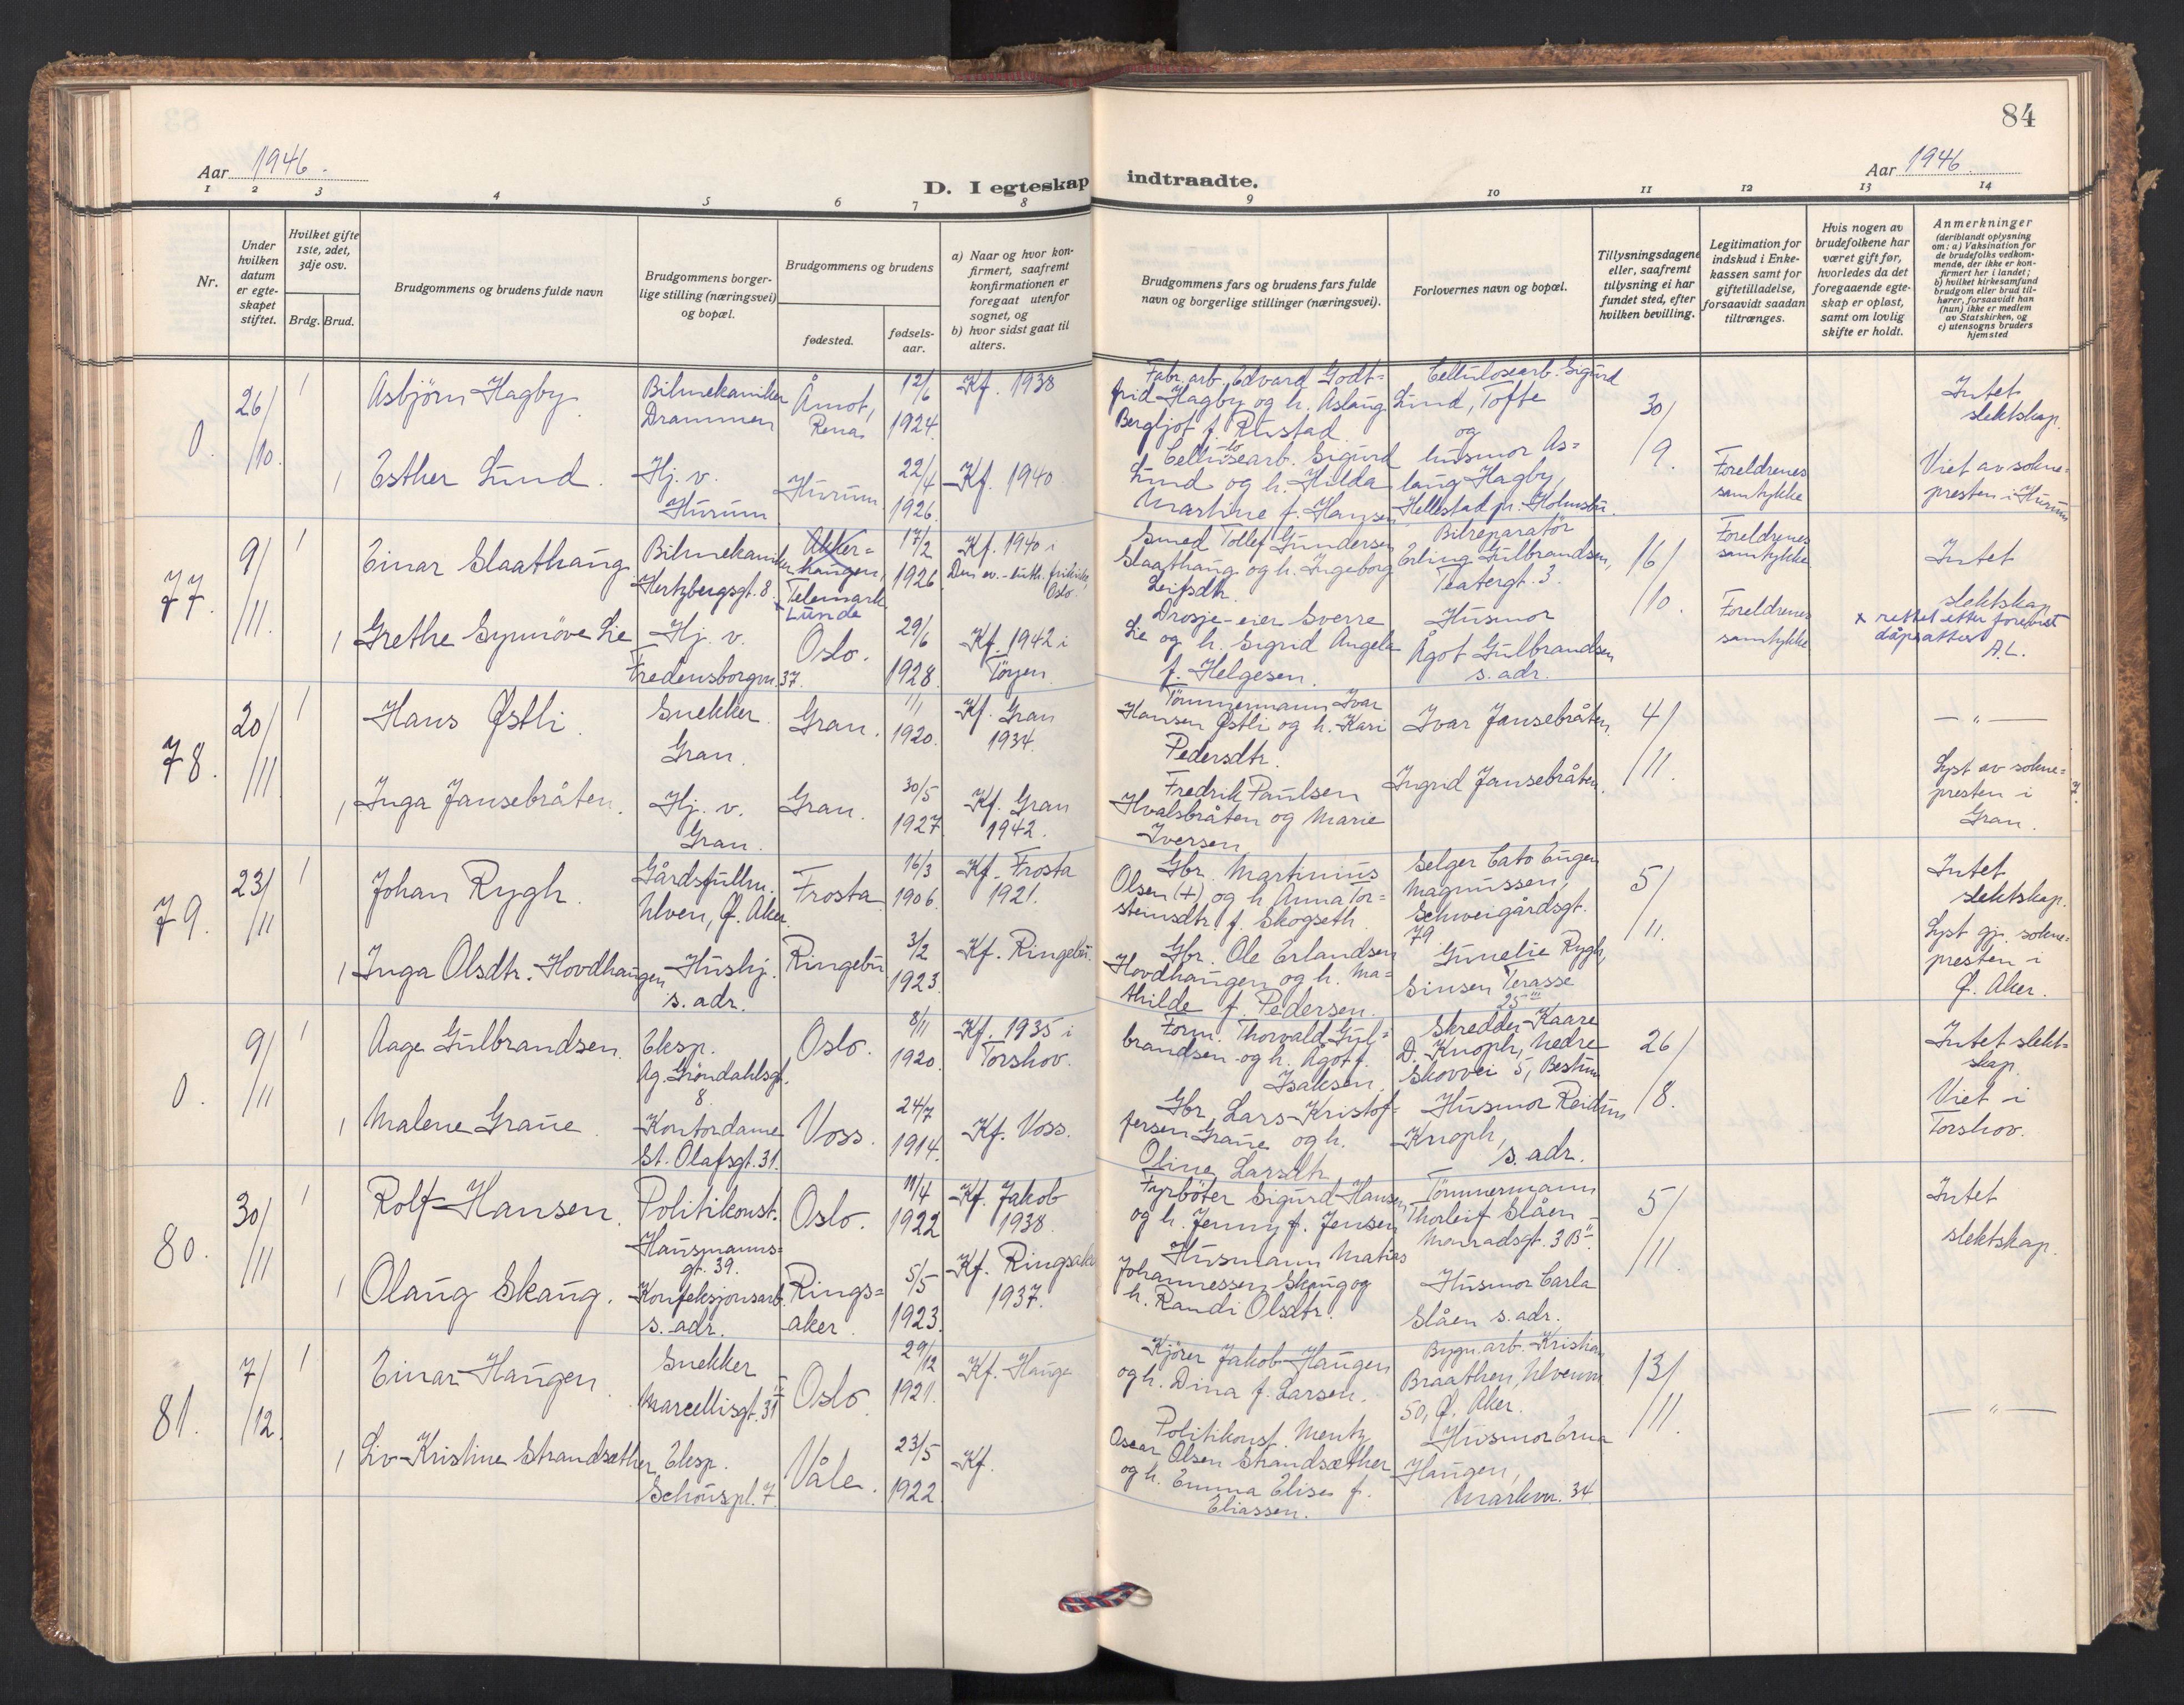 84
Aar 1946.
D. I egteskap indtraadte.
Aar 1946.
1 2 3 4 5 6 7 8 9 10 11 12 13 14
Nr.
Under hvilken datum er egteskapet stiftet.
Hvilket gifte 1ste, 2det, 3dje osv.
Brdg. Brud.
Brudgommens og brudens fulde navn
Brudgommens borgerlige stilling (næringsvei) og bopæl.
Brudgommens og brudens
fødested.
fødselsaar.
a) Naar og hvor konfirmert, saafremt konfirmationen er foregaat utenfor sognet, og
b) hvor sidst gaat til alters.
Brudgommens fars og brudens fars fulde navn og borgerlige stillinger (næringsvei).
Forlovernes navn og bopæl.
Tillysningsdagene eller, saafremt tillysning ei har fundet sted, efter hvilken bevilling.
Legitimation for indskud i Enkekassen samt for giftetilladelse, forsaavidt saadan tiltrænges.
Hvis nogen av brudefolkene har været gift før, hvorledes da det foregaaende egteskap er opløst, samt om lovlig skifte er holdt.
Anmerkninger
(deriblandt oplysning om: a) Vaksination for de brudefolks vedkommende, der ikke er konfirmert her i landet;
b) hvilket kirkesamfund brudgom eller brud tilhører, forsaavidt han (hun) ikke er medlem av Statskirken, og
c) utensogns bruders hjemsted
0. 26/10. 1 Asbjørn Hagby. Bilmekaniker Drammen Åmot, Rena 12/6 1924. Kf. 1938
Fabr. arb. Edvard Godtfrid Hagby og h. Aslaug Bergljot f. Rustad.
Cellulosearb. Sigurd Lund, Tofte og
30/9.
Intet slektskap.
1 Esther Lund. Hj. v. Hurum Hurum 22/4 1926. Kf. 1940
Cellulosearb. Sigurd Lund og h. Hilda Martine f. Hansen
husmor Aslaug Hagby, Hellestad pr. Holmsbu.
Foreldrenes samtykke
Viet av sokne= presten i Hurum
77. 9/11. 1 Einar Slaathaug Bilmekaniker Hertzbergsgt. 8. Akker= haugen, Telemark x Lunde 17/2 1926 Kf. 1940 i Den ev.-luth. frikirke, Oslo.
Smed Tollef Gundersen Slaathaug og h. Ingeborg Leifsdtr.
Bilreparatør Erling Gulbrandsen, Teatergt. 3.
16/10.
Foreldrenes samtykke
Intet slektskap
1 Grethe Synnøve Lie Hj. v. Fredensborgvn. 37. Oslo. 29/6 1928. Kf. 1942 i Tøyen
Drosje-eier Sverre Lie og h. Sigrid Angela f. Helgesen.
Husmor Ågot Gulbrandsen s. adr.
Foreldrenes samtykke
x rettet etter forevist dåpsattest A.L.
78. 20/11. 1 Hans Østli Snekker. Gran. Gran. 1/1 1920. Kf. Gran 1934.
Tømmermann Ivar Hansen Østli og h. Kari Pedersdtr.
Ivar Jansebråten.
4/11.
— " —
1 Inga Jansebråten. Hj. v. Gran. Gran. 30/5 1927 Kf. Gran 1942.
Fredrik Paulsen Hvalsbråten og Marie Iversen
Ingrid Jansebråten.
Lyst av sokne= presten i Gran.
79. 23/11 1 Johan Rygh. Gårdsfullm. Ulven, Ø. Aker. Frosta 16/3 1906. Kf. Frosta 1921.
Gbr. Martinius Olsen (+) og h Anna Tor= steinsdtr f. Skogseth
Selger Cato Eugen Magnussen, Schweigårdsgt. 79.
5/11.
Intet slektskap.
1 Inga Olsdtr. Hovdhaugen Hushj. s. adr. Ringebu 3/2 1923. Kf. Ringebu.
Gbr. Ole Erlandsen Hovdhaugen og h. Ma= thilde f. Pedersen.
Gunelie Rygh, Sinsen Terasse 25 III
Lyst gj. sokne= presten i Ø. Aker.
0. 9/11 1 Aage Gulbrandsen. Eksp. Ag. Grøndahlsgt. 8. Oslo. 8/11 1920. Kf. 1935 i Torshov.
Form. Thorvald Gul= brandsen og h. Ågot f. Isaksen.
Skredder Kaare D. Knoph, Nedre Skovvei 5, Bestum
26/8.
Intet slekt= skap.
1 Malene Graue. Kontordame St. Olafsgt. 31. Voss. 24/7 1914. Kf. Voss.
Gbr. Lars Kristof= fersen Graue og h. Oline Larsdtr
Husmor Reidun Knoph, s. adr.
Viet i Torshov.
80. 30/11 1 Rolf Hansen. Politikonst. Hausmanns= gt. 39. Oslo. 11/4 1922 Kf. Jakob 1938.
Fyrbøter Sigurd Hansen og h. Jenny f. Jensen
Tømmermann Thorleif Slåen Monradsgt. 3 B II.
5/11.
Intet slektskap.
1 Olaug Skaug. Konfeksjonsarb. s. adr. Rings= aker. 5/5 1923. Kf. Ringsaker 1937.
Husmann Matias Johannessen Skaug og h. Randi Olsdtr.
Husmor Carla Slåen s. adr.
81. 7/12. 1 Einar Haugen Snekker Marcellisgt. 31 Oslo. 29/12 1921. Kf. Hauge
Kjører Jakob Haugen og h. Dina f. Larsen.
Bygn. arb. Kristian Braathen, Ulvenvn 50, Ø. Aker.
13/11.
— " —
1 Liv Kristine Strandsæther Eksp. Schouspl. 7. Våle. 23/5 1922. Kf.
Politikonst. Mentz Oscar Olsen Strandsæther og h. Emma Elise f. Eliassen.
Husmor Erna Haugen, Markvn. 34.